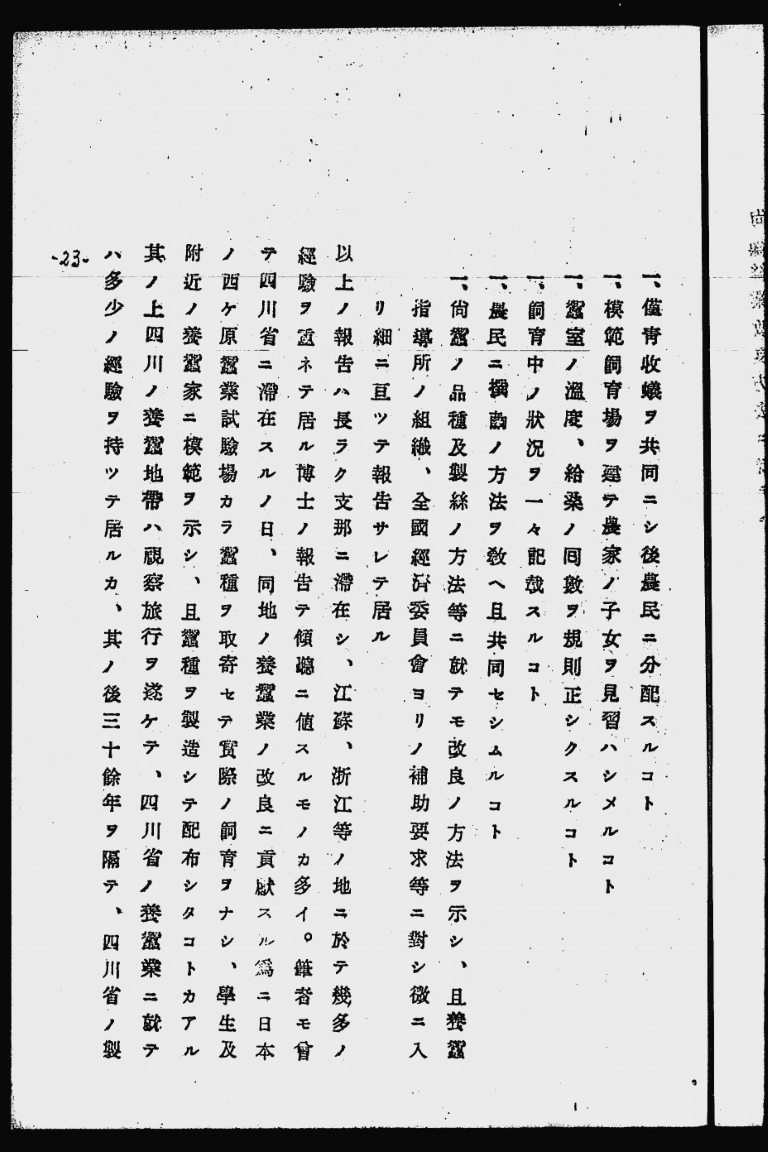 一、催青收蟻ヲ共同ニシ後農民ニ分配スルコト
一、模範飼育場ヲ建テ農家ノ子女ヲ見習ハシメルコト
一、蠶室ノ溫度、給桑ノ囘數ヲ規則正シクスルコト
一、飼育中ノ狀況ヲ一々記載スルコト
一、農民ニ撰繭ノ方法ヲ敎ヘ且共同セシムルコト
一、尙蠶ノ品種及製絲ノ方法等ニ就テモ改良ノ方法ヲ示シ、且養蠶
指導所ノ組織、全國經濟委員會ヨリノ補助要求等ニ對シ微ニ入
リ細ニ亘ツテ報告サレテ居ル
以上ノ報告ハ長ラク支那ニ滯在シ、江蘇、浙江等ノ地ニ於テ幾多ノ
經驗ヲ重ネテ居ル博士ノ報告テ傾聽ニ値スルモノカ多イ。筆者モ曾
テ四川省ニ滯在スルノ日、同地ノ養蠶業ノ改良ニ貢獻スル爲ニ日本
ノ西ケ原蠶業試驗場カラ蠶種ヲ取寄セテ實際ノ飼育ヲナシ、學生及
附近ノ養蠶家ニ模範ヲ示シ、且蠶種ヲ製造シテ配布シタコトカアル
其ノ上四川ノ養蠶地帶ハ視察旅行ヲ遂ケテ、四川省ノ養蠶業ニ就テ
ハ多少ノ經驗ヲ持ツテ居ルカ、其ノ後三十餘年ヲ隔テ、四川省ノ製
-23-